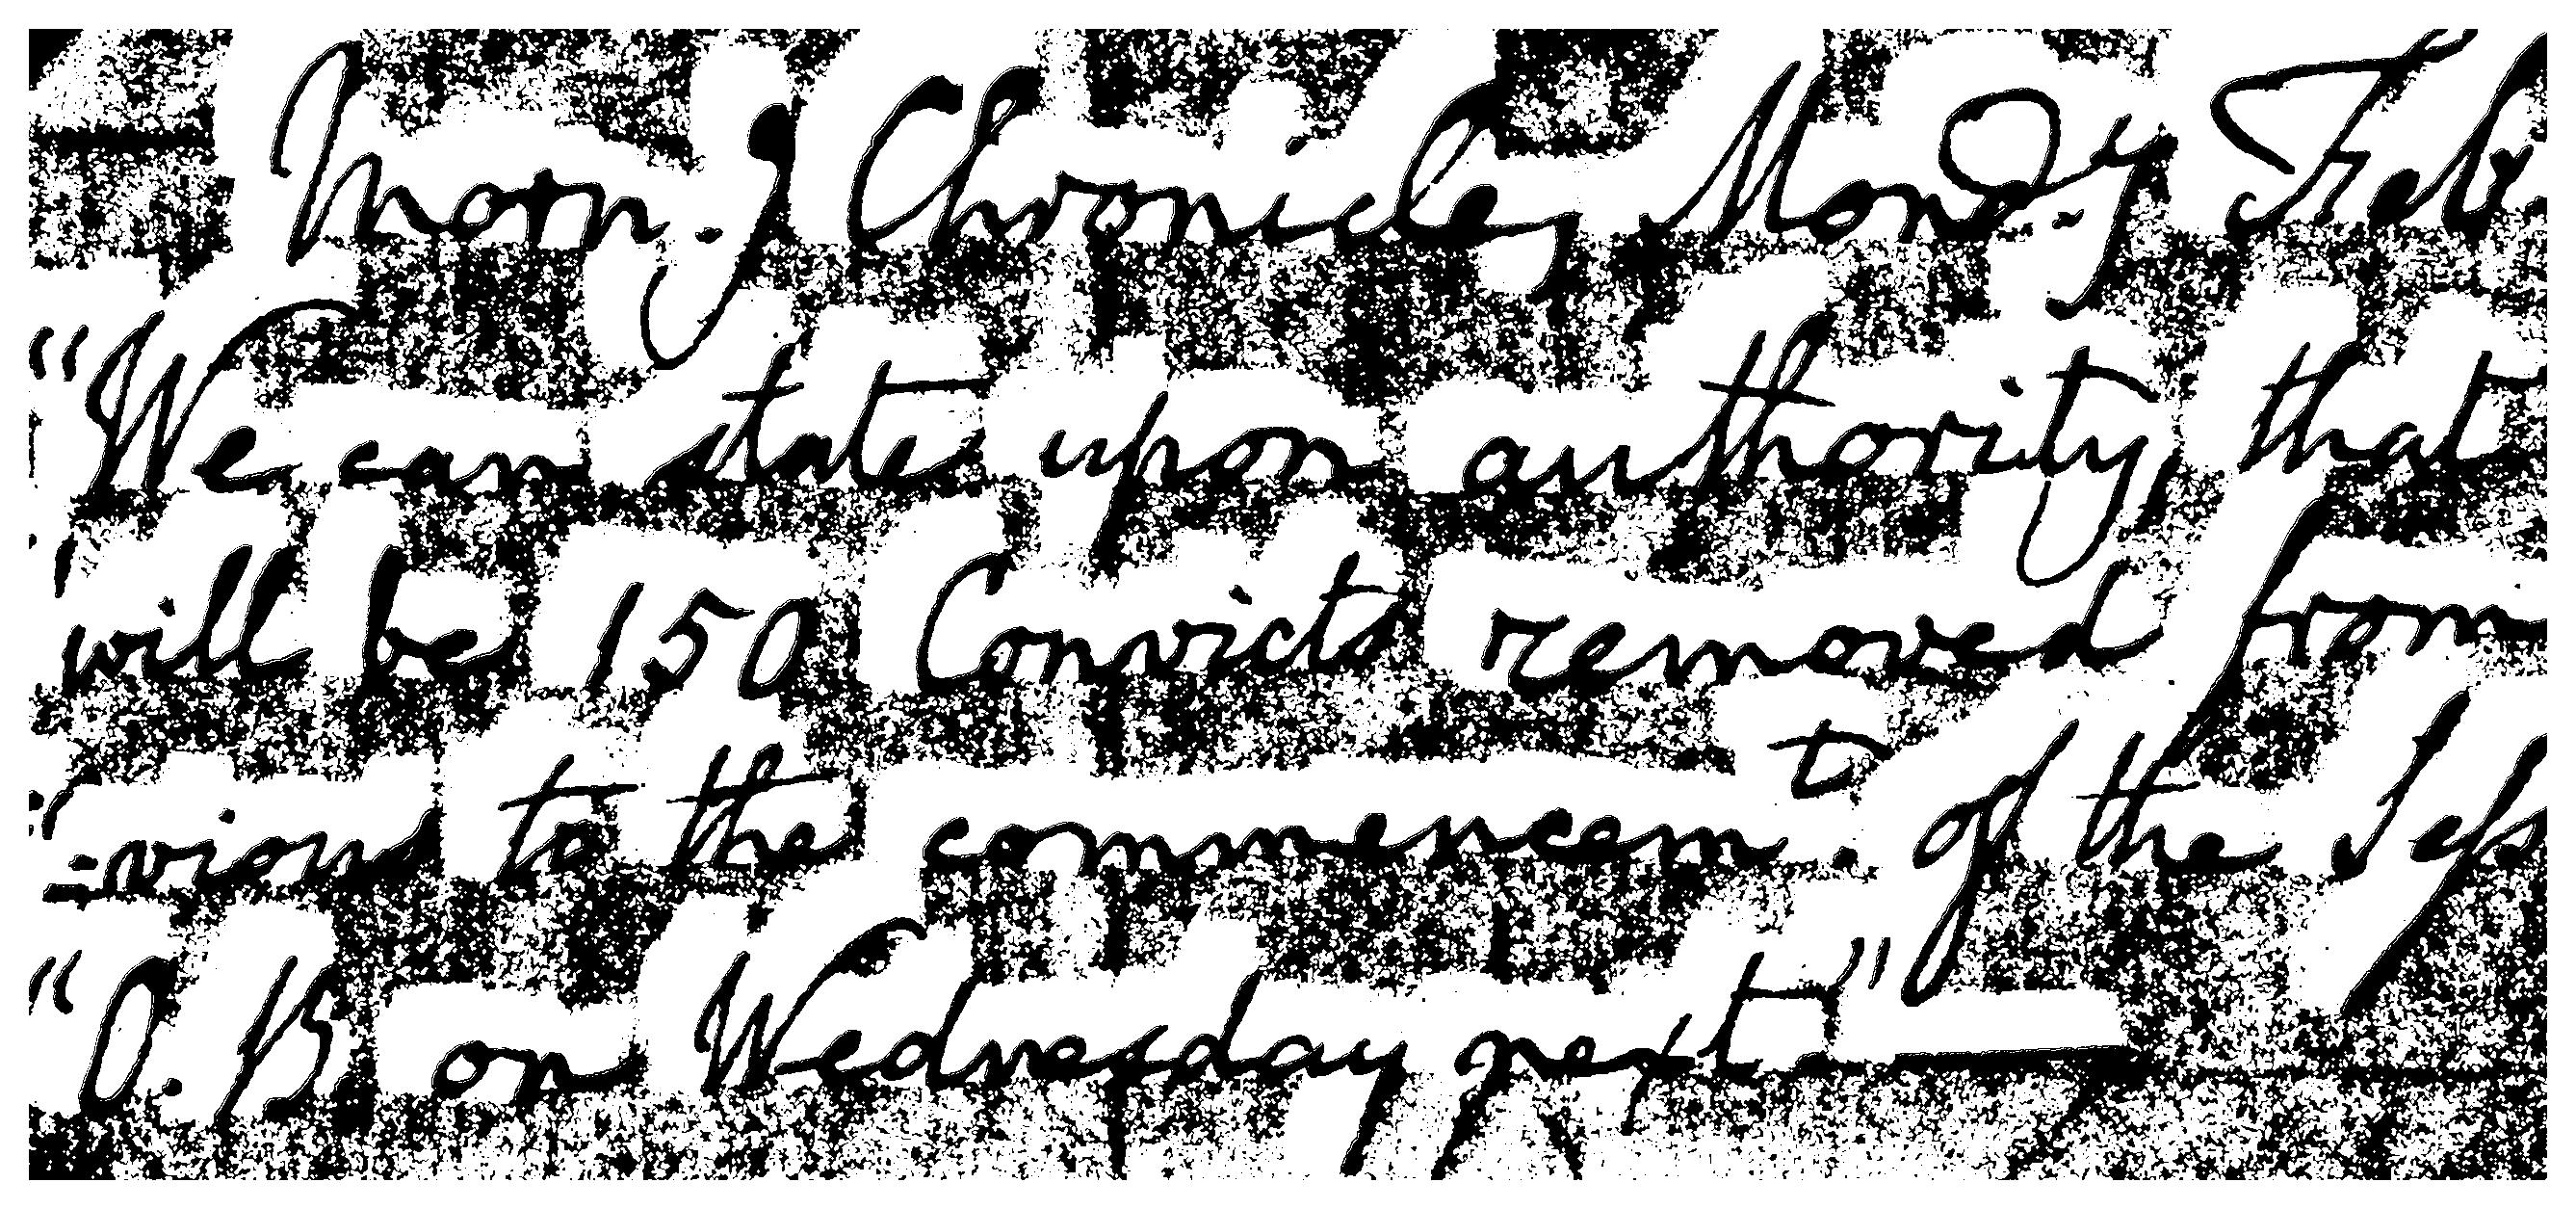 Morn.g Chronicle, Mond.y Feb.
"We can state upon authority, that
"will be 150 Convicts removed from
"=vious to the commencem.t of the Sess
"O. B. on Wednesday next."